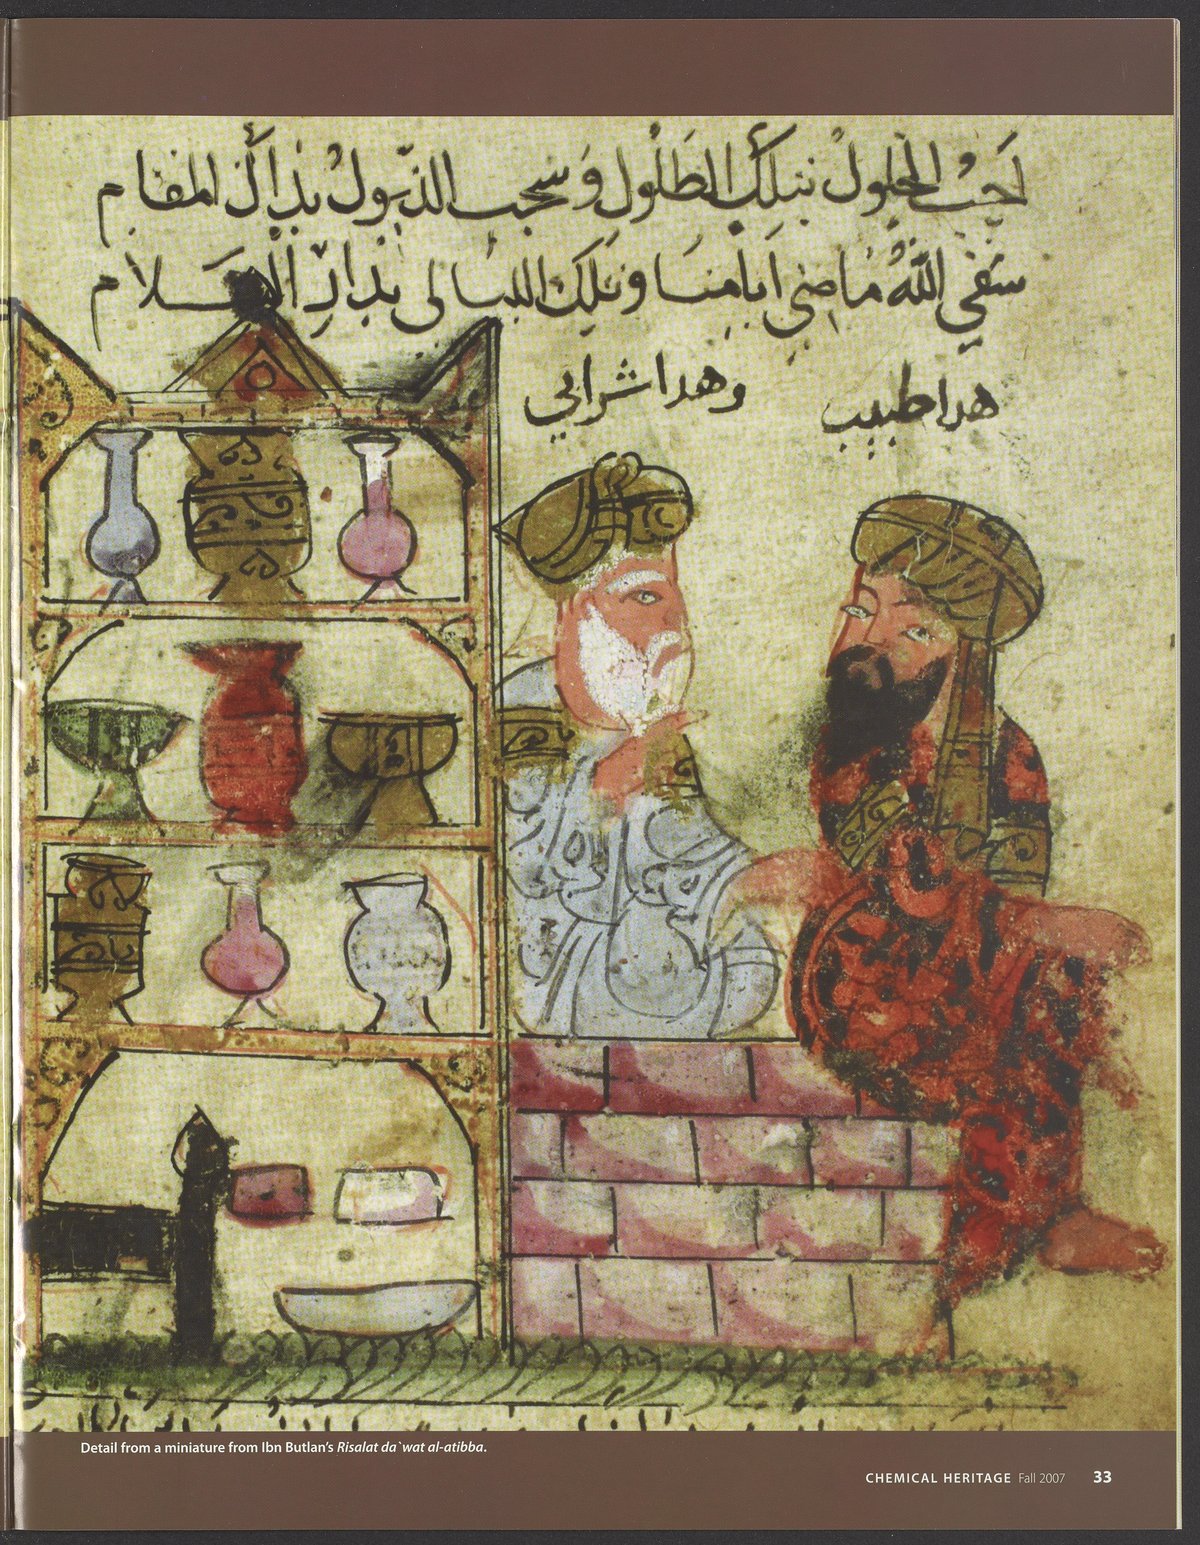 احب الحلول بتلك الطلول و سحب الذيول بذاك المقام
سقى الله ماضي ايامنا وتلك الليالي بدار السلام
هدا طبيب
وهدا شرابي
Detail from a miniature from Ibn Butlan's Risalat da`wat al-atibba.
CHEMICAL HERITAGE Fall 2007 33